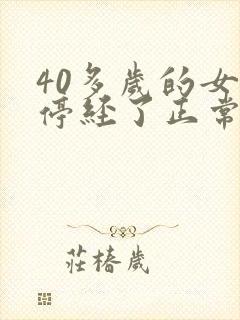 40多歲的女
停經了正常
莊椿歲